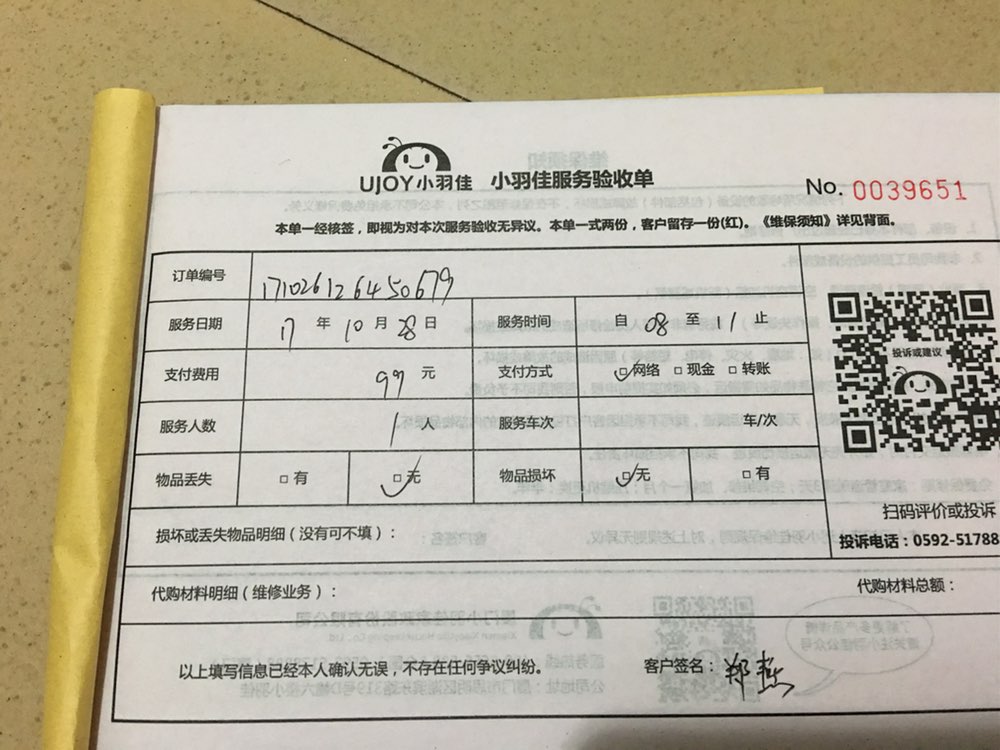 UJOY小羽佳 小羽佳服务验收单
No. 0039651
本单一经核签，即视为对本次服务验收无异议。本单一式两份，客户留存一份(红)。《维保须知》详见背面。
订单编号 171026126450679
服务日期 17 年 10 月 28 日 服务时间 自 08 至 11 止
投诉或建议
支付费用 99 元 支付方式 □网络 □现金 □转账
服务人数 1 人 服务车次 车/次
物品丢失 □有 □无 物品损坏 □无 □有
扫码评价或投诉
损坏或丢失物品明细（没有可不填）：
投诉电话：0592-51788
代购材料明细（维修业务）： 代购材料总额：
以上填写信息已经本人确认无误，不存在任何争议纠纷。 客户签名：郑燕